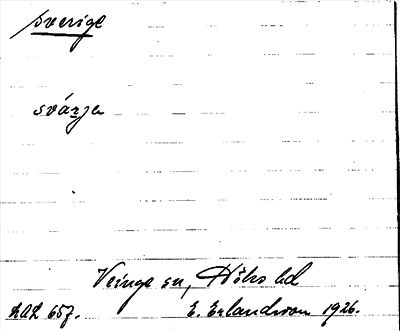 Sverige
svárja
Veinge sn, Höks hd
LAL 657. E. Erlandsson 1926.